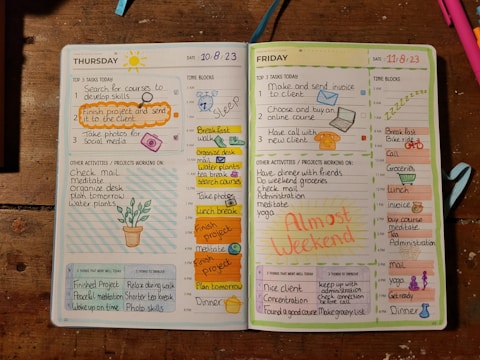 THURSDAY
DATE 10.8.23
TOP 3 TASKS TODAY
1 Search for courses to
develop skills
2 Finish project and send
it to the client
3 Take photos for
Social media
OTHER ACTIVITIES / PROJECTS WORKING ON:
Check mail
meditate
Organize desk
plan tomorrow
Water plants
3 THINGS THAT WENT WELL TODAY
Finished Project
Peaceful meditation
Woke up on time
3 THINGS TO IMPROVE
Relax during walk
Shorter tea break
Photo skills
TIME BLOCKS
Sleep
Breakfast
walk
Organize desk
mail
Water plants
tea break
search courses
Take photos
Lunch break
Finish
Project
Meditate
Finish
Project
Plan tomorrow
Dinner
FRIDAY
DATE 11.8.23
TOP 3 TASKS TODAY
1 Make and send invoice
to client
2 Choose and buy an
online course
3 Have call with
new client
OTHER ACTIVITIES / PROJECTS WORKING ON:
Have dinner with friends
Do weekend groceries
check mail
Administration
meditate
yoga
Almost
Weekend
3 THINGS THAT WENT WELL TODAY
Nice client
Concentration
Found a good course
3 THINGS TO IMPROVE
keep up with
administration
Check connection
before call
Make grocery list
TIME BLOCKS
zzzzzzzz
Break fast
Bike ride
Call
Groceries
Lunch
invoice
buy course
meditate
Tea
Administration
Mail
yoga
Get ready
Dinner